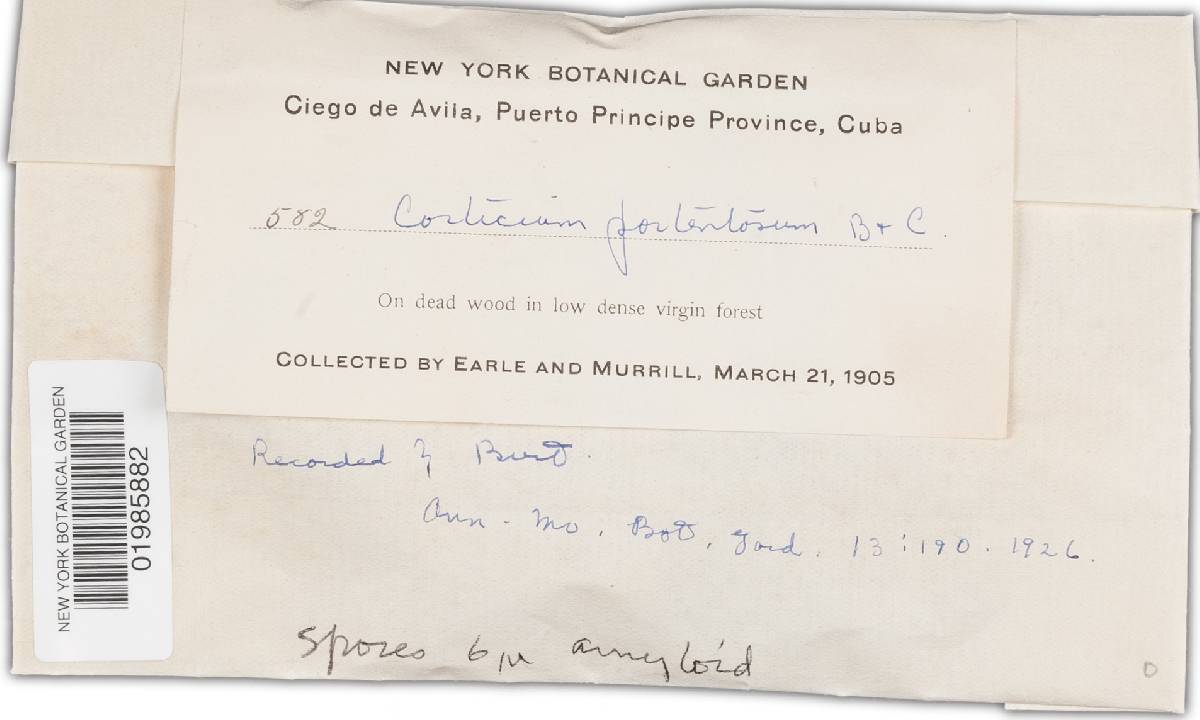 NEW YORK BOTANICAL GARDEN
Ciego de Avila, Puerto Principe Province, Cuba
582 Corticium portentosum B + C.
On dead wood in low dense virgin forest
COLLECTED BY EARLE AND MURRILL, MARCH 21, 1905
Recorded by Burt.
Ann. Mo. Bot. Gard. 13:190. 1926.
Spores 6 μ amyloid
NEW YORK BOTANICAL GARDEN
01985882
D